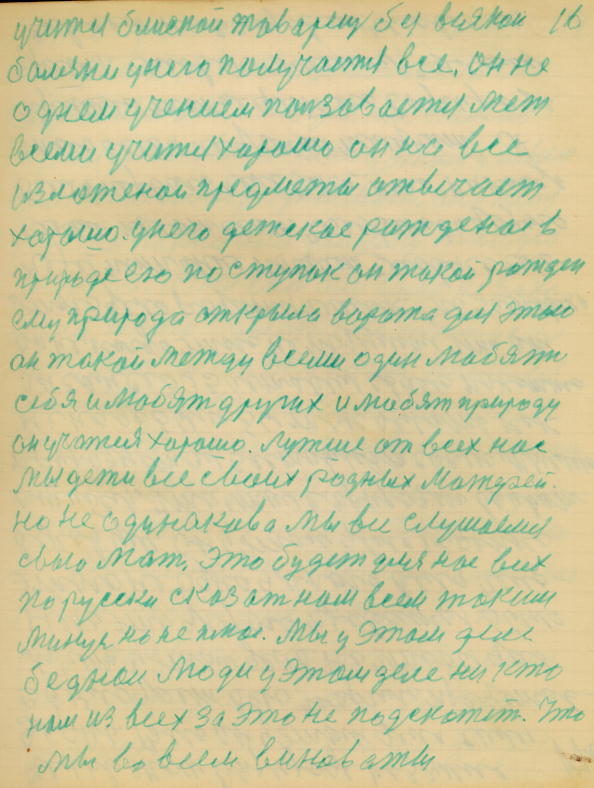 учится близкой товарещ без всякой 16
болячки у него получается все. он не
одnем учениемползовается меж
всеми учится хорошо он на все
изложеной предметы отвычает
хорошо. у него детское рождение в
природе его поступок он такой рожден
ему природа открыла ворота для этого
он такой между всеми один любять
себя и любят других и любят природу
он учится хорошо. лутше от всех нас
мы дети все своих родных матерей.
но не одинакова мы все слушаемся
свою мать, это будет для нас всех
по русски сказат нам всем таким
минуя но не плюс. мы у этом деле
бедной люди у этом деле ни кто
нам из всех за это не подскожет. Что
мы во всем виноваты